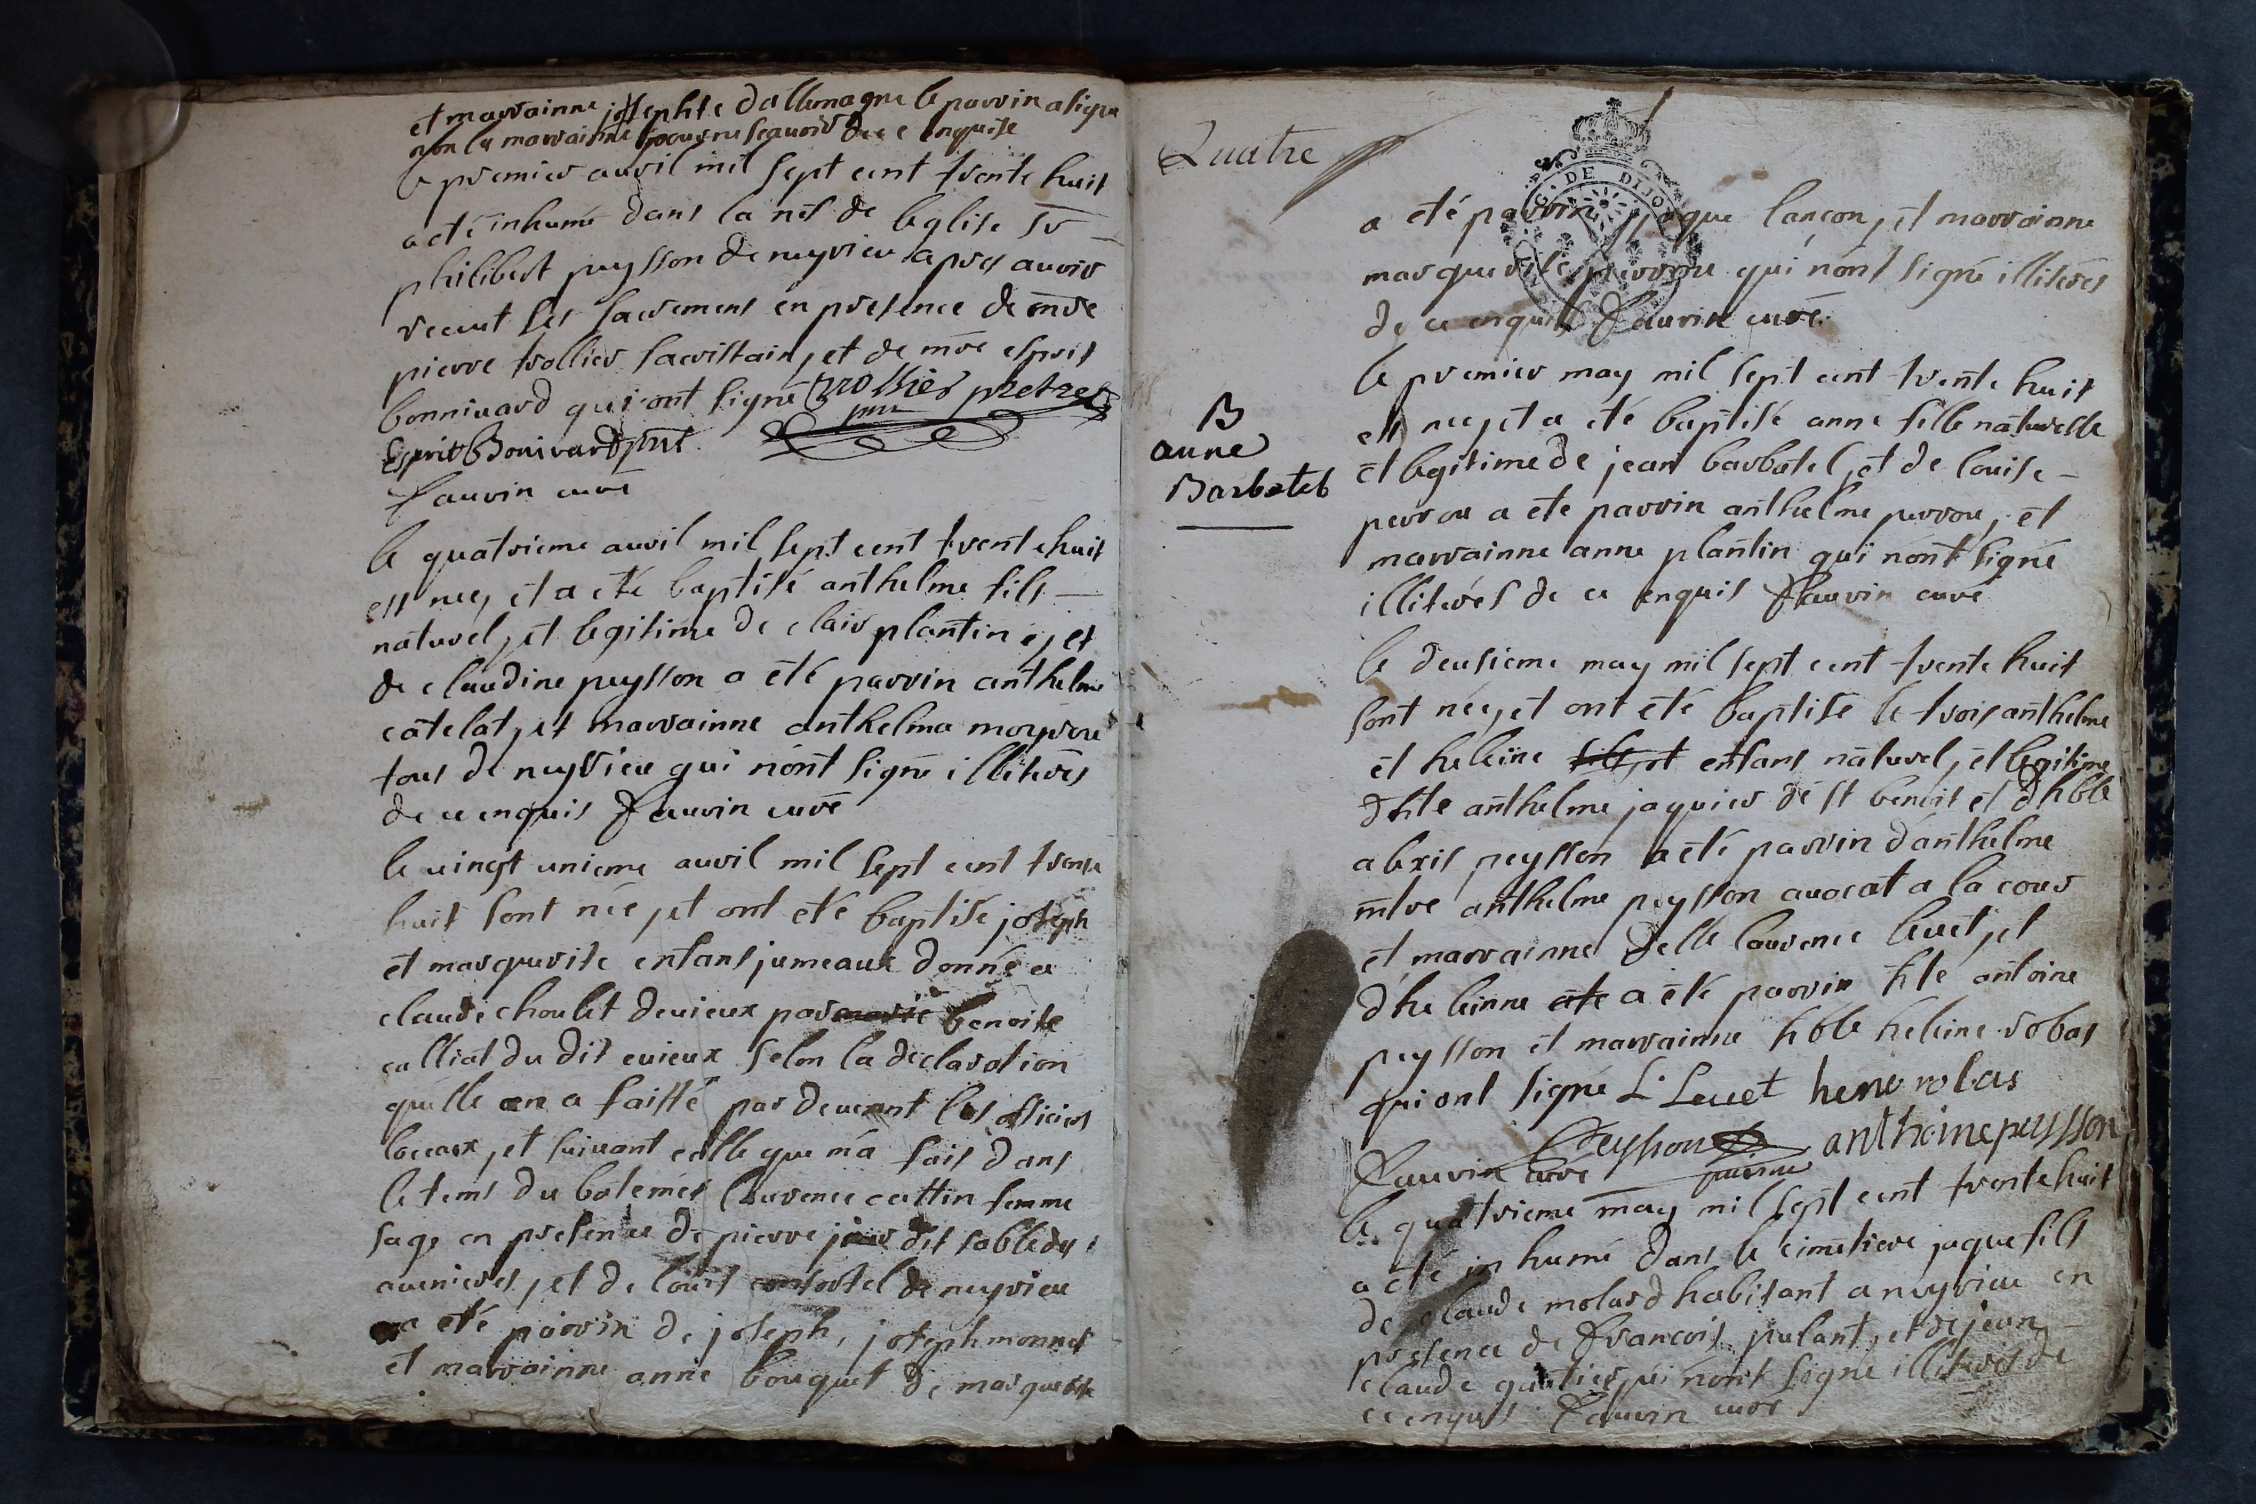 et marrainne josephte dallemagne le parrin a signé
non la marrainne pour ne scauoir de ce enquise
le premier auril mil sept cent trente huit
a eté inhumé dans la nef de leglise sr
philibert peysson de neyrieu apres auoir
receut les sacremens en presence de mre
pierre trollier sacristain, et de mre esprit
bonniuard qui ont signé Trollier pretre
pnt
Esprit Boniuard pnt
Fauvin curé
le quatrieme auril mil sept cent trente huit
est nee, et a eté baptisé anthelme fils
naturel, et legitime de clair plantin, et
de claudine peysson a été parrin anthelme
catelat, et marrainne anthelma
tous de neyrieu qui n'ont signé illiterés
de ce enquis Fauvin curé
le uingt unieme auril mil sept cent trente
huit sont née, et ont eté baptisé joseph
et marguerite enfans jumeaux donné a
claude choulet deuieux par marie benoite
culliat du dit euieux selon la declaration
qu'elle en a faitté par deuant les officiers
locaux, et suiuant celle que m'a fait dans
le tems du bâtemes laurence cuttin femme
sage en presence de pierre dit sable des
auenieres, et de louis de neyrieu
a eté parrin de joseph, joseph monnet
et marrainne anne bouquet de marguerite
Quatre
G. DE DIJON
a eté parrin jaque lançon, et marrainne
marguerite perrone qui n'ont signé illiterés
de ce enquis Fauvin curé
le premier may mil sept cent trente huit
est nee, et a eté baptisé anne fille naturelle
et legitime de jean barbatel, et de louise
perrone a ete parrin anthelme perrone, et
marrainne anne plantin qui n'ont signé
illiterés de ce enquis Fauvin curé
B
anne
Barbatel
le deusieme may mil sept cent trente huit
sont née, et ont eté baptisé le trois anthelme
et heleine enfans naturel, et legitime
d'hte anthelme jaquier de st benoit et d'hble
alexis peysson a eté parrin d'anthelme
mtre anthelme peysson auocat a la cour
et marrainne delle laurence leuet, et
d'heleinne ete a eté parrin hte antoine
peysson et marrainne hble heleine robas
qui ont signé L. Leuet robas
Peysson anthoine peysson
Fauvin curé
le quatrieme may mil sept cent trente huit
a eté inhumé dans le cimetiere jaque fils
de claude molard habitant a neyrieu en
presence de francois pulant, et de jean
claude gautier qui n'ont signé illiterés de
ce enquis Fauvin curé